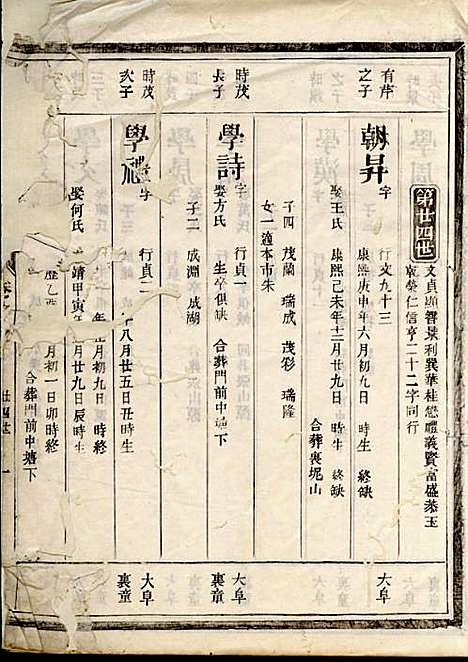 第廿四世
文貞顯
景利巽華桂戀禮義賢富盛恭玉
榮仁信亨二十二字同行
有芹之子
朝昇
字
行文九十三
康熙庚申年六月初九日
時生
終缺
娶王氏
康熙己未年十二月廿九日
時生
終缺
合葬裏坭山
大阜
子四
茂蘭
瑞成
茂彩
瑞隆
女一適本市朱
時茂長子
學詩
字
行貞一
生卒俱缺
合葬門前中塘下
大阜裏童
娶方氏
子二
成淵
成湖
時茂次子
學禮
字
行貞二
八月廿五日丑時生
年正月初九日
時終
大阜裏童
娶何氏
靖甲寅
月廿九日辰時生
月初一日卯時終
合葬門前中塘下
廿四世
一